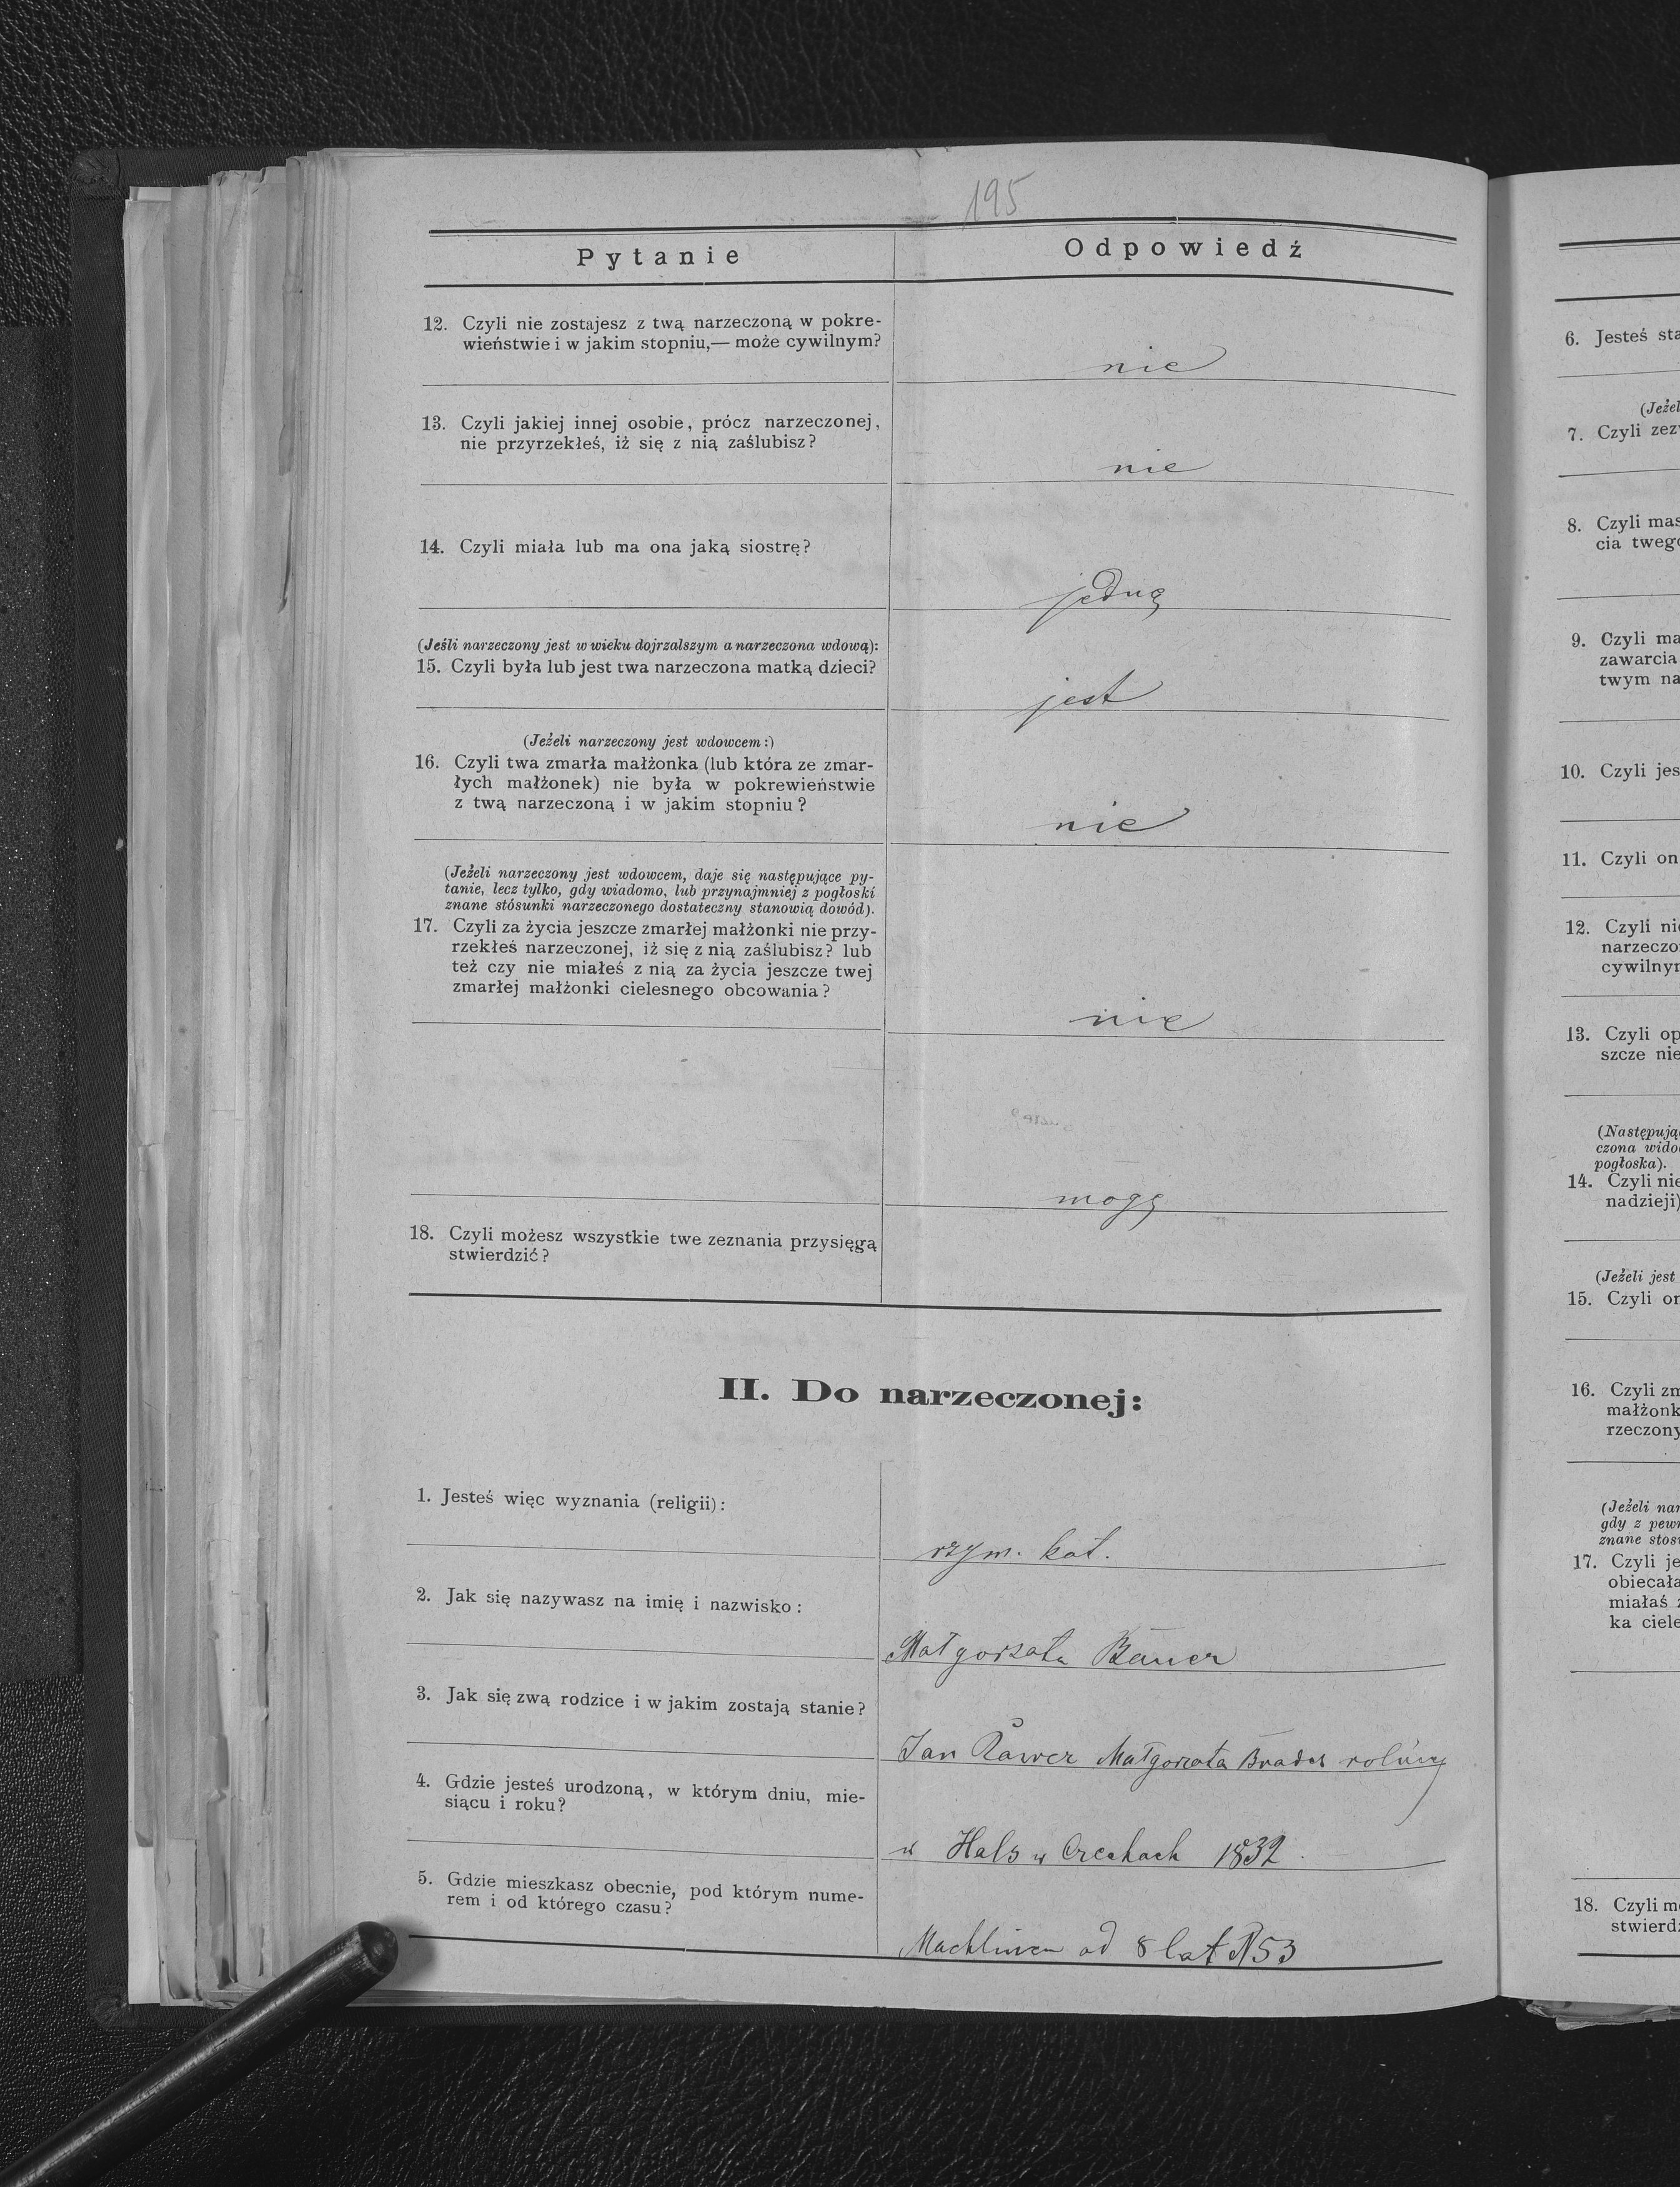 195
Pytanie
Odpowiedź
12. Czyli nie zostajesz z twą narzeczoną w pokre-
wieństwie i w jakim stopniu,— może cywilnym?
nie
13. Czyli jakiej innej osobie, prócz narzeczonej,
nie przyrzekłeś, iż się z nią zaślubisz?
nie
14. Czyli miała lub ma ona jaką siostrę?
jedną
(Jeśli narzeczony jest w wieku dojrzalszym a narzeczona wdową):
15. Czyli była lub jest twa narzeczona matką dzieci?
jest
(Jeżeli narzeczony jest wdowcem:)
16. Czyli twa zmarła małżonka (lub która ze zmar-
łych małżonek) nie była w pokrewieństwie
z twą narzeczoną i w jakim stopniu?
nie
(Jeżeli narzeczony jest wdowcem, daje się następujące py-
tanie, lecz tylko, gdy wiadomo, lub przynajmniej z pogłoski
znane stósunki narzeczonego dostateczny stanowią dowód).
17. Czyli za życia jeszcze zmarłej małżonki nie przy-
rzekłeś narzeczonej, iż się z nią zaślubisz? lub
też czy nie miałeś z nią za życia jeszcze twej
zmarłej małżonki cielesnego obcowania?
nie
mogę
18. Czyli możesz wszystkie twe zeznania przysięgą
stwierdzić?
II. Do narzeczonej:
1. Jesteś więc wyznania (religii):
rzym. kat.
2. Jak się nazywasz na imię i nazwisko:
Małgorzata Bauer
3. Jak się zwą rodzice i w jakim zostają stanie?
Jan Małgorzata
4. Gdzie jesteś urodzoną, w którym dniu, mie-
siącu i roku?
w Hals w Czechach 1832
5. Gdzie mieszkasz obecnie, pod którym nume-
rem i od którego czasu?
Machliniec od 8 lat N 53
6. Jesteś sta
(Jeżel
7. Czyli zez
8. Czyli mas
cia tweg
9. Czyli ma
zawarcia
twym na
10. Czyli jes
11. Czyli on
12. Czyli ni
narzeczo
cywilny
13. Czyli op
szcze nie
(Następują
czona wido
pogłoska).
14. Czyli nie
nadzieji)
(Jeżeli jest
15. Czyli or
16. Czyli zm
małżonk
rzeczony
(Jeżeli nar
gdy z pew
znane stos
17. Czyli je
obiecała
miałaś
ka ciele
18. Czyli m
stwierdz